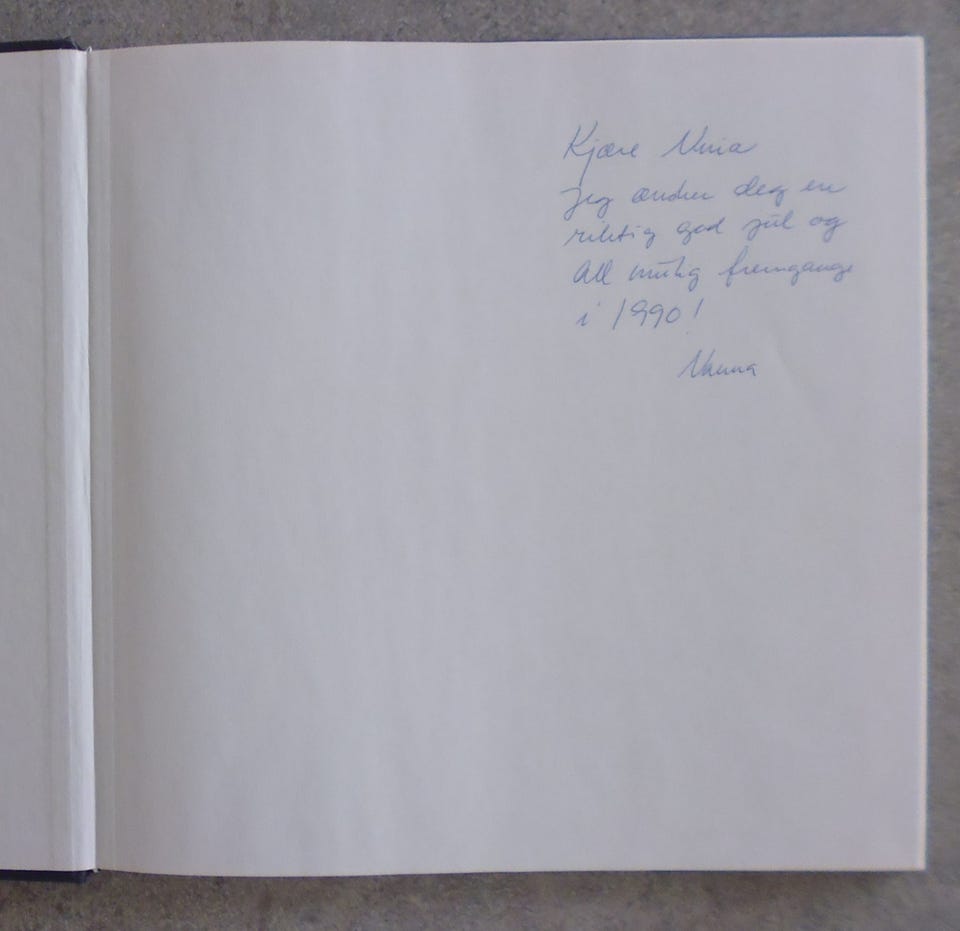 Kjære Nina
Jeg ønsker deg en
riktig god jul og
All mulig fremgang
i 1990!